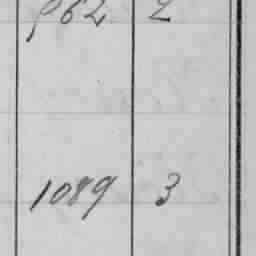 962 2
1089 3